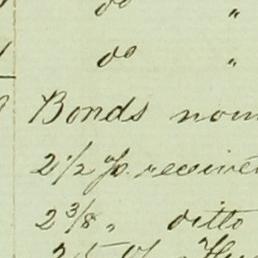 do "
do "
Bonds nom
2 1/2 % receive
2 3/8 " ditto